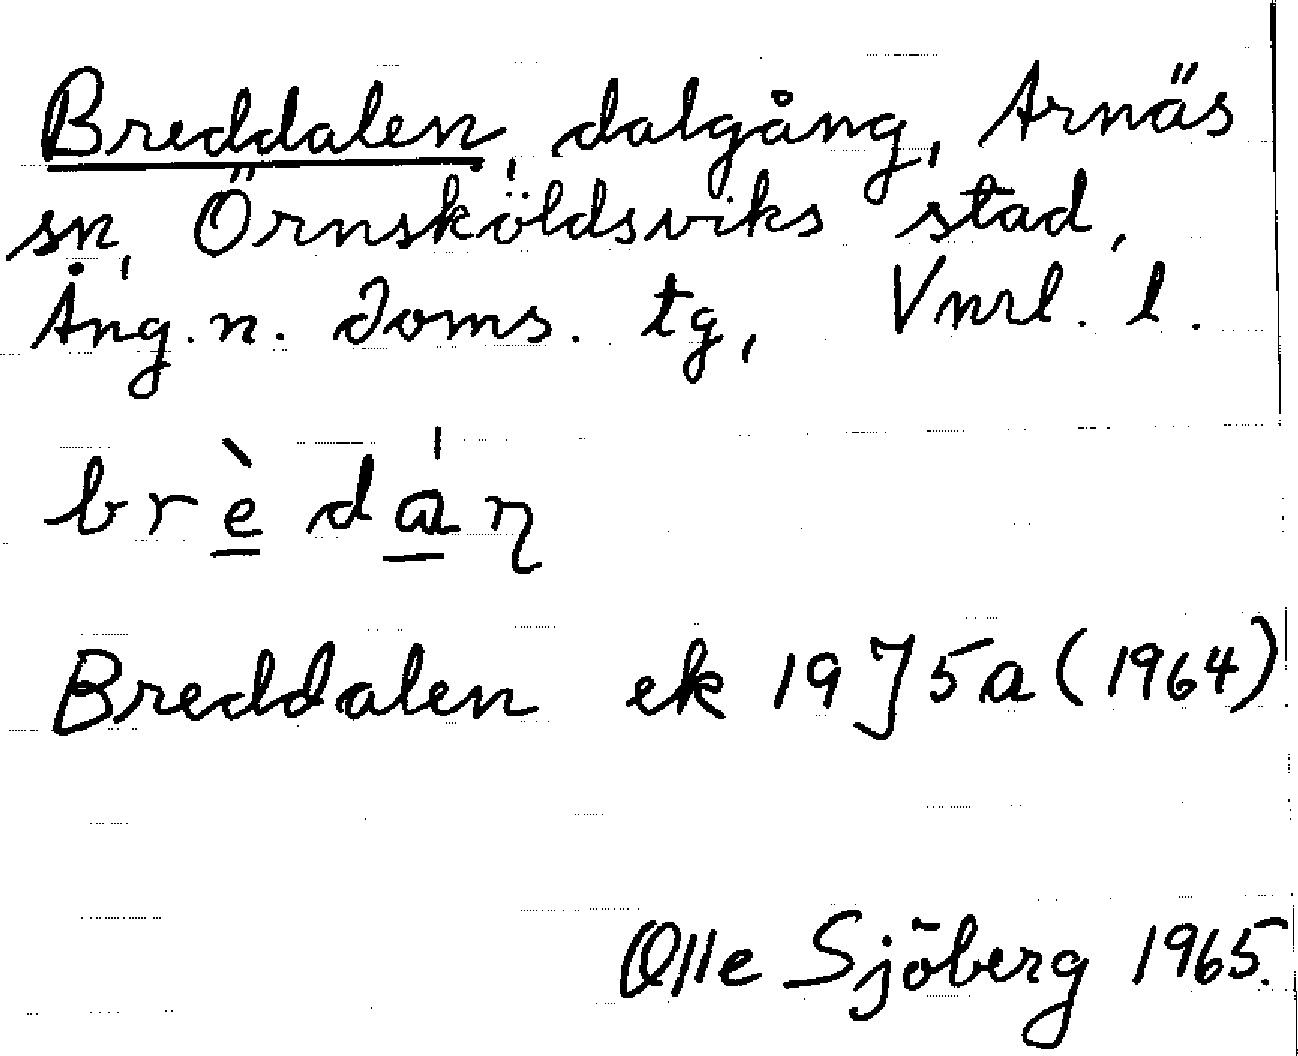 Breddalen, dalgång, Arnäs
sn, Örnsköldsviks stad,
Ång. n. doms. tg, Vnrl. l.
brè dá ɳ
Breddalen ek 19 J 5a (1964)
Olle Sjöberg 1965.